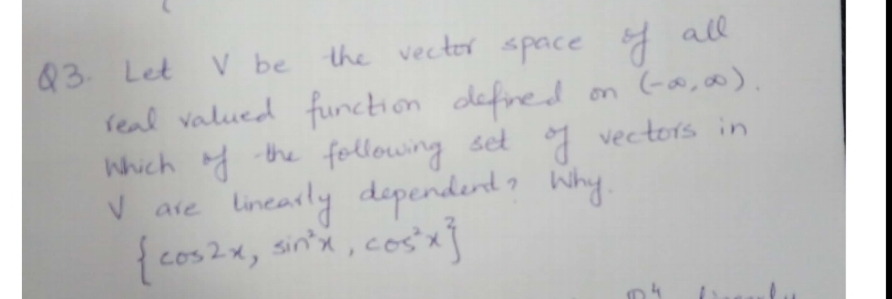 Q3. Let V be the vector space of all
real valued function defined on (-∞,∞).
Which of the following set of vectors in
V are linearly dependent? Why.
{cos2x, sin²x, cos²x}
Q4